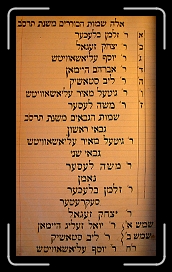 אלה שמות הבוררים משנת תרסב
א ר׳ זלמן בלעכער
ב ר׳ יצחק זעגאל
ג ר׳ יוסף עליאשאוויטש
ד ר׳ אברהם היימאן
ה ר׳ ליב סטאשיק
ו ר׳ גיטעל מאיר עליאשאוויטש
ז ר׳ משה לעסער
שמות הגבאים משנת תרסב
גבאי ראשון
ר׳ גיטעל מאיר עליאשאוויטש
גבאי שני
ר׳ משה לעסער
נאמן
ר׳ זלמן בלעכער
סעקרעטער
ר׳ יצחק זעגאל
שמש א׳ ר׳ יואל זעליג היימאן
שמש ב׳ ר׳ ליב סטאשיק
ר׳ יוסף עליאשאוויטש